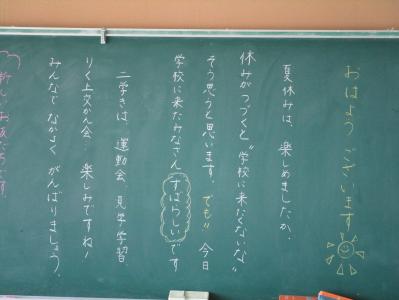 おはようございます
夏休みは、楽しめましたか。
休みがつづくと"学校に来たくないな"
そう思うと思います。でも!!今日
学校に来たみなさんすばらしいです
二学きは、運動会、見学学習
りく上交かん会…楽しみですね!
みんなでなかよくがんばりましょう。